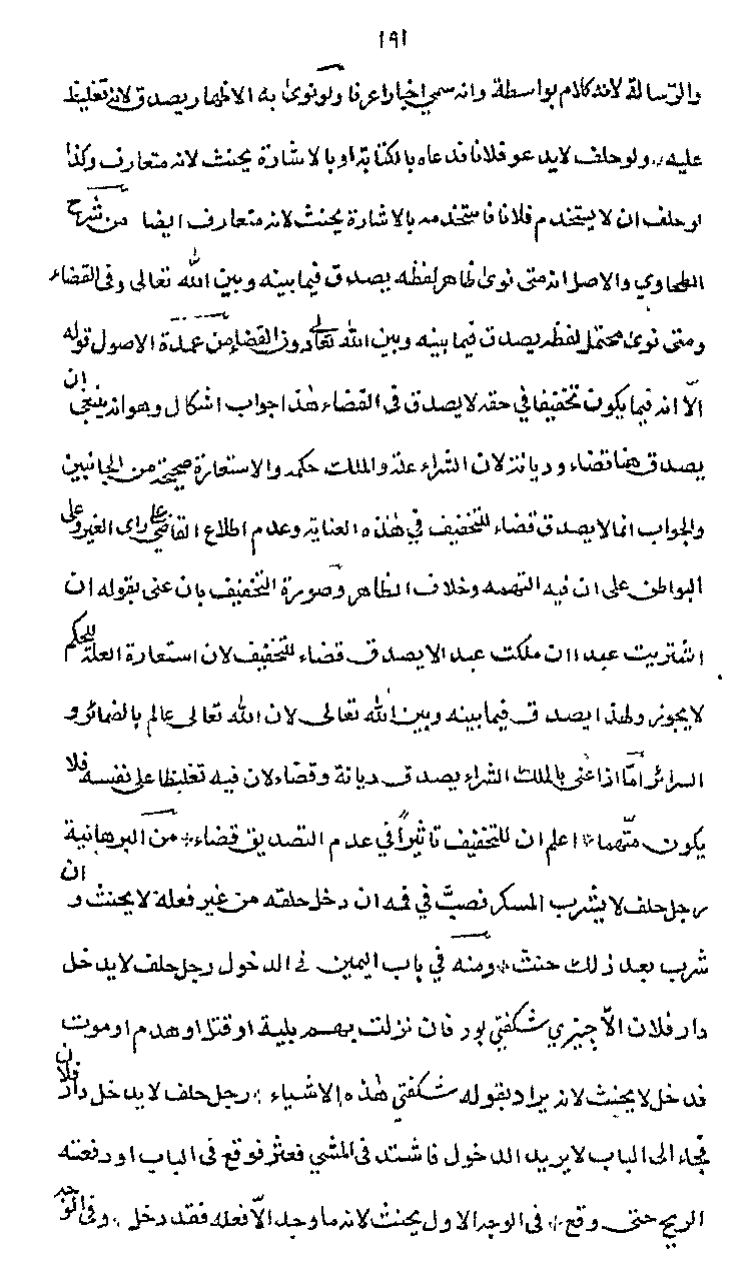 ١٩١
والرسالة لانه كلام بواسطة وانه سمي اخبارا عرفا ولو نوى به الاظهار يصدق لانه تغليظ
عليه ٠٠ ولو حلف لا يدعو فلانا فدعاه بالكتابة او بالاشارة يحنث لانه متعارف وكذا
لو حلف ان لا يستخدم فلانا فاستخدمه بالاشارة يحنث لانه متعارف ايضا من شرح
الطحاوي والاصل انه متى نوى ظاهر لفظه يصدق فيما بينه وبين الله تعالى وفى القضاء
ومتى نوى محتمل لفظه يصدق فيما بينه وبين الله تعالى دون القضاء من عمدة الاصول قوله
الّا انه فيما يكون تخفيفا في حقه لا يصدق في القضاء هٰذا جواب اشكال وهو انه ينبغي ان
يصدق هنا قضاء وديانة لان الشراء علة والملك حكمه والاستعارة صحيحة من الجانبين
والجواب انما لا يصدق قضاء للتخفيف في هٰذه العناية وعدم اطلاع القاضي على راى الغير وعلى
البواطن على ان فيه التهمه وخلاف الظاهر وصورة التخفيف بان عنى بقوله ان
اشتريت عبدا ان ملكت عبدا لا يصدق قضاء للتخفيف لان استعارة العلة للحكم
لا يجوز ولهذا يصدق فيما بينه وبين الله تعالى لان الله تعالى عالم بالضمائر و
السرائر امّا اذا عنى بالملك الشراء يصدق ديانة وقضاء لان فيه تغليظا على نفسه فلا
يكون متّهما * اعلم ان للتخفيف تاثيراً في عدم التصديق قضاء * من البرهانية
رجل حلف لا يشرب المسكر فصبّ في فمه ان دخل حلقه من غير فعله لا يحنث و ان
شرب بعد ذلك حنث * ومنه في باب اليمين في الدخول رجل حلف لا يدخل
دار فلان الّا جيزي شكفتي بود فان نزلت بهم بلية او قتل او هدم او موت
فدخل لا يحنث لانه يراد بقوله شكفتي هٰذه الاشياء ٠٠ رجل حلف لا يدخل دار فلان
فجاء الى الباب لا يريد الدخول فاشتد فى المشي فعثر فوقع فى الباب او دفعته
الريح حتى وقع ٠٠ فى الوجه الاول يحنث لانه ما وجد الّا فعله فقد دخل ٠٠ وفى الوجه